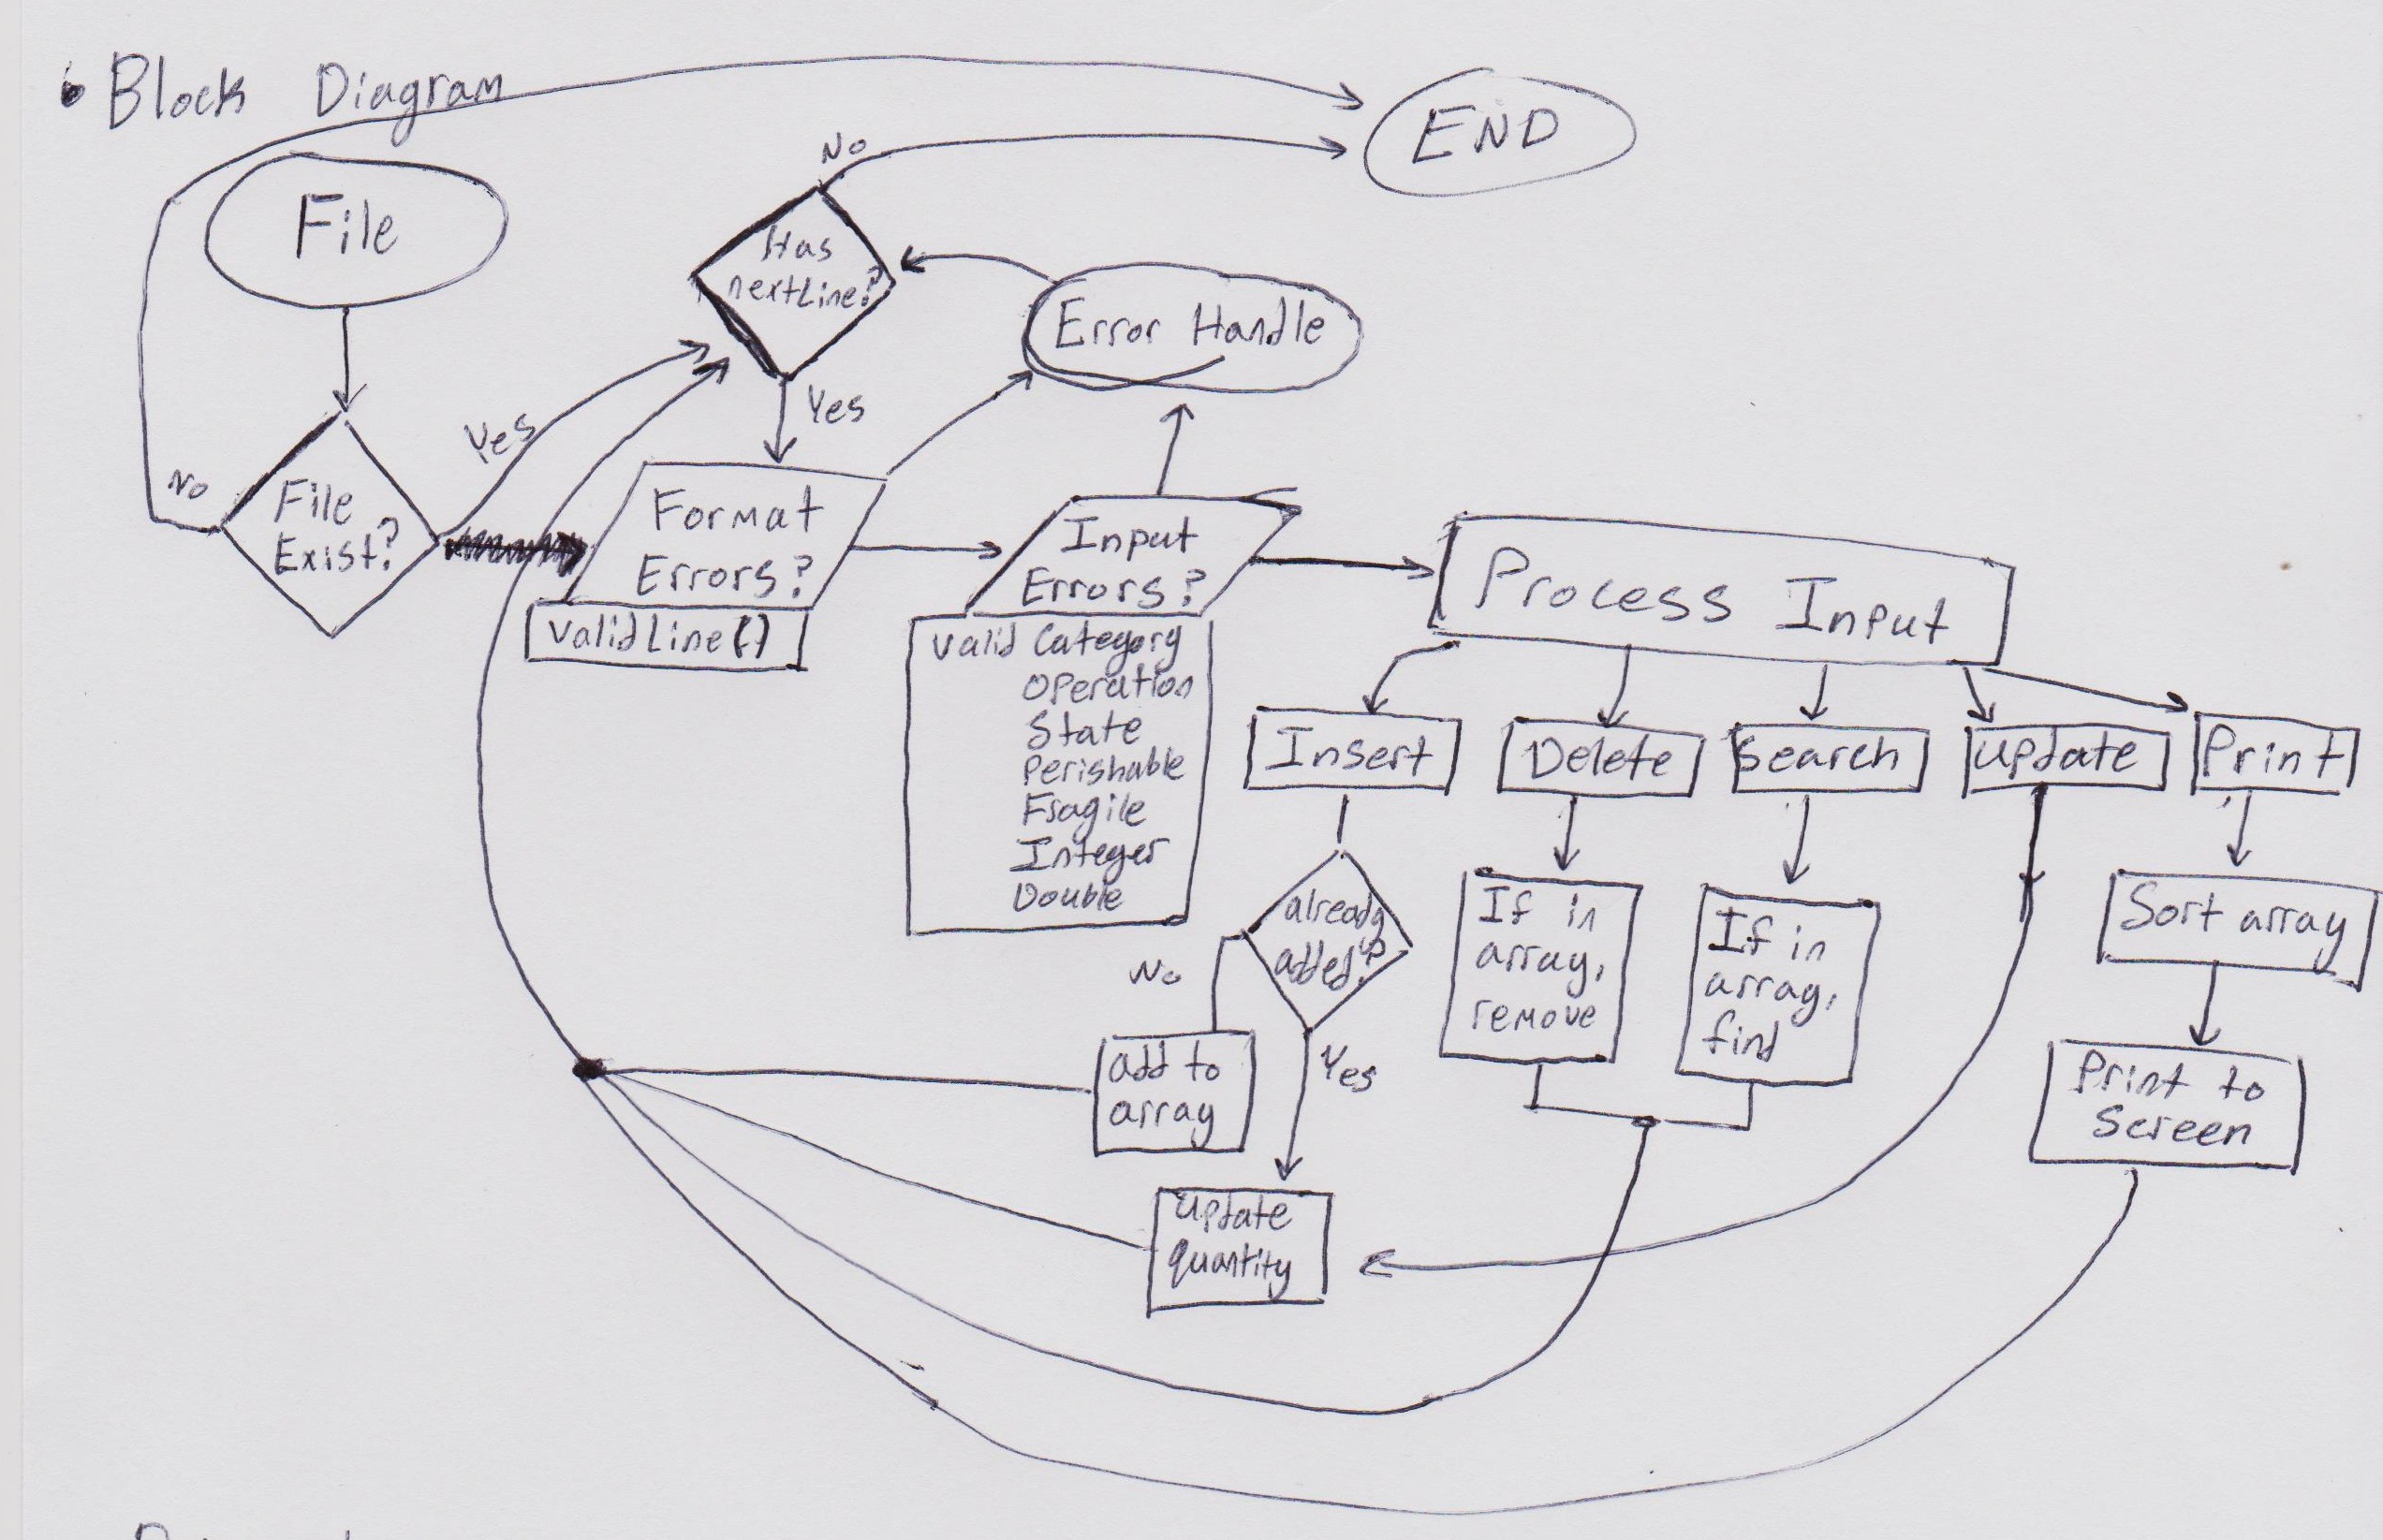 Block Diagram
END
No
File
Has
nextLine?
Error Handle
Yes
Yes
No
File
Exist?
Format
Errors?
validLine()
Input
Errors?
valid Category
Operation
State
Perishable
Fragile
Integer
Double
Process Input
Insert
Delete
Search
Update
Print
already
added?
No
Yes
add to
array
update
quantity
If in
array,
remove
If in
array,
find
Sort array
Print to
Screen